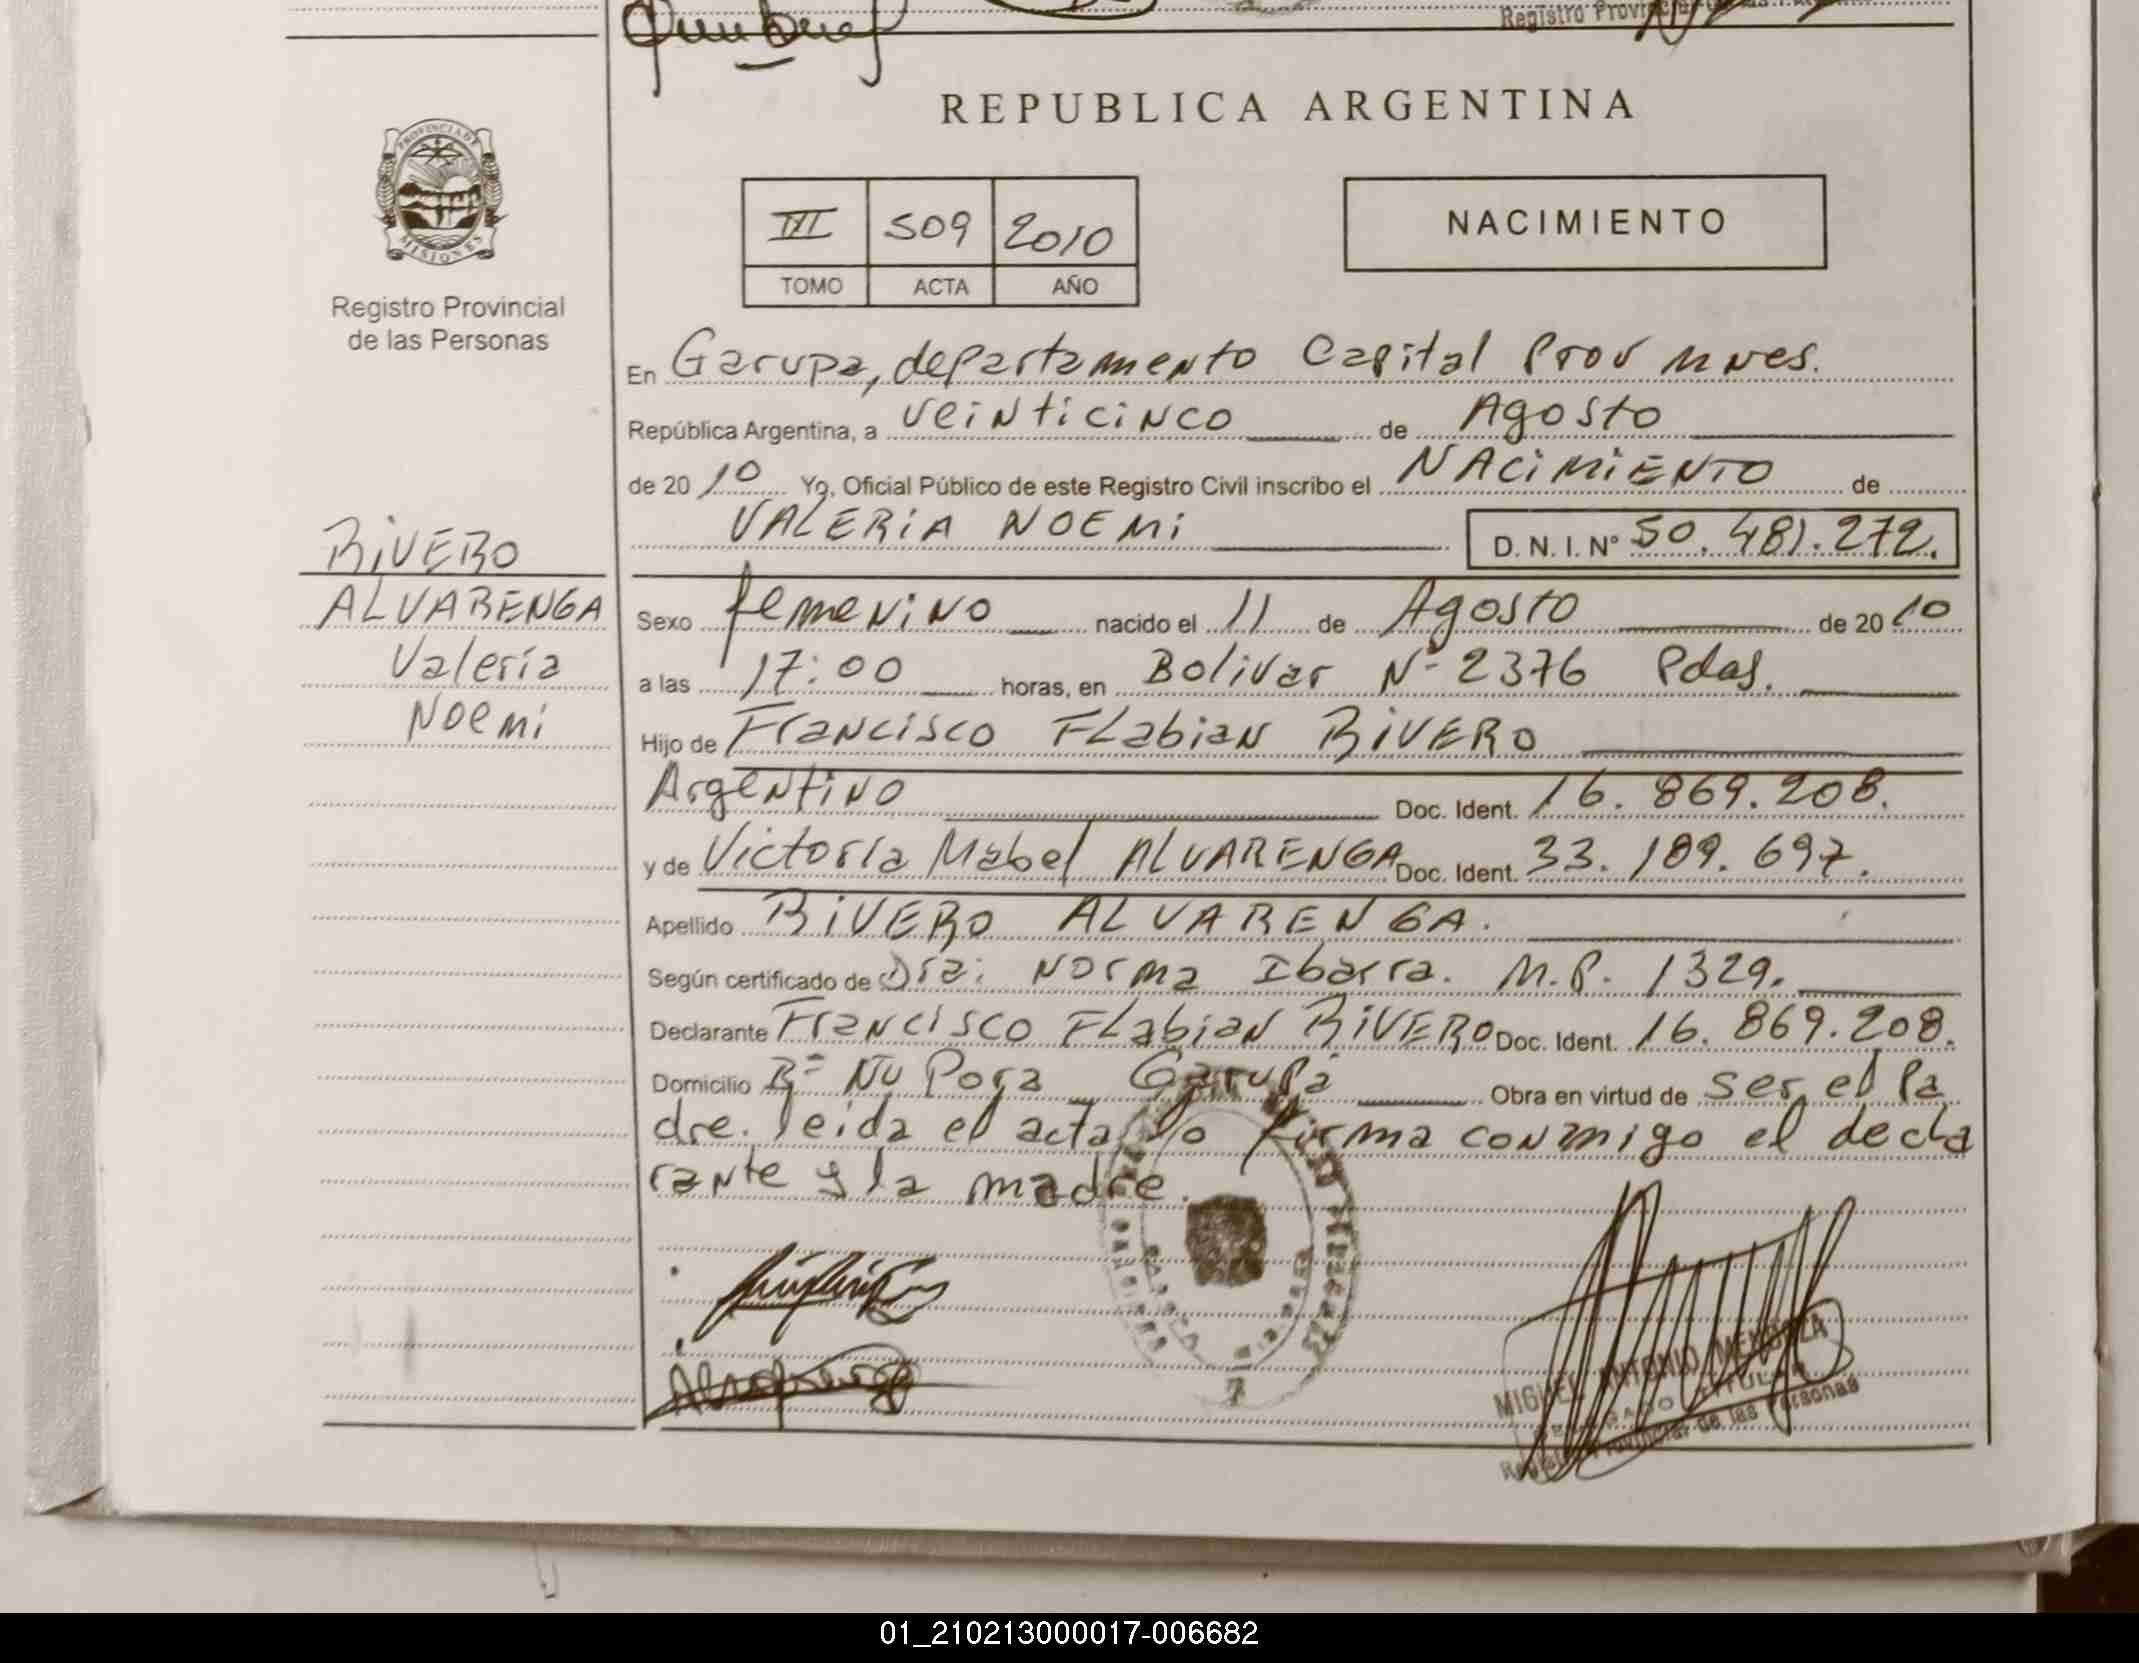 Registro Provincial
REPUBLICA ARGENTINA
PROVINCIA DE
MISIONES
Registro Provincial
de las Personas
III 509 2010
TOMO ACTA AÑO
NACIMIENTO
En Garupa, departamento Capital Prov Mnes.
República Argentina, a veinticinco de Agosto
de 2010 Yo, Oficial Público de este Registro Civil inscribo el NACIMIENTO de
VALERIA NOEMI D.N.I. Nº 50.481.272.
RIVERO
ALVARENGA
Valeria
Noemi
Sexo femenino nacido el 11 de Agosto de 2010
a las 17:00 horas, en Bolivar Nº 2376 Pdas.
Hijo de Francisco FLabian RIVERO
Argentino Doc. Ident. 16.869.208.
y de Victoria Mabel ALVARENGA Doc. Ident. 33.189.697.
Apellido RIVERO ALVARENGA.
Según certificado de Dra: Norma Ibarra. M.P. 1329.
Declarante Francisco FLabian RIVERO Doc. Ident. 16.869.208.
Domicilio Bº Ñu Pora Garupa Obra en virtud de ser el Pa
dre. leida el acta lo firma conmigo el decla
rante y la madre.
MIGUEL ANTONIO MENDOZA
TITULAR
Registro Provincial de las Personas
01_210213000017-006682